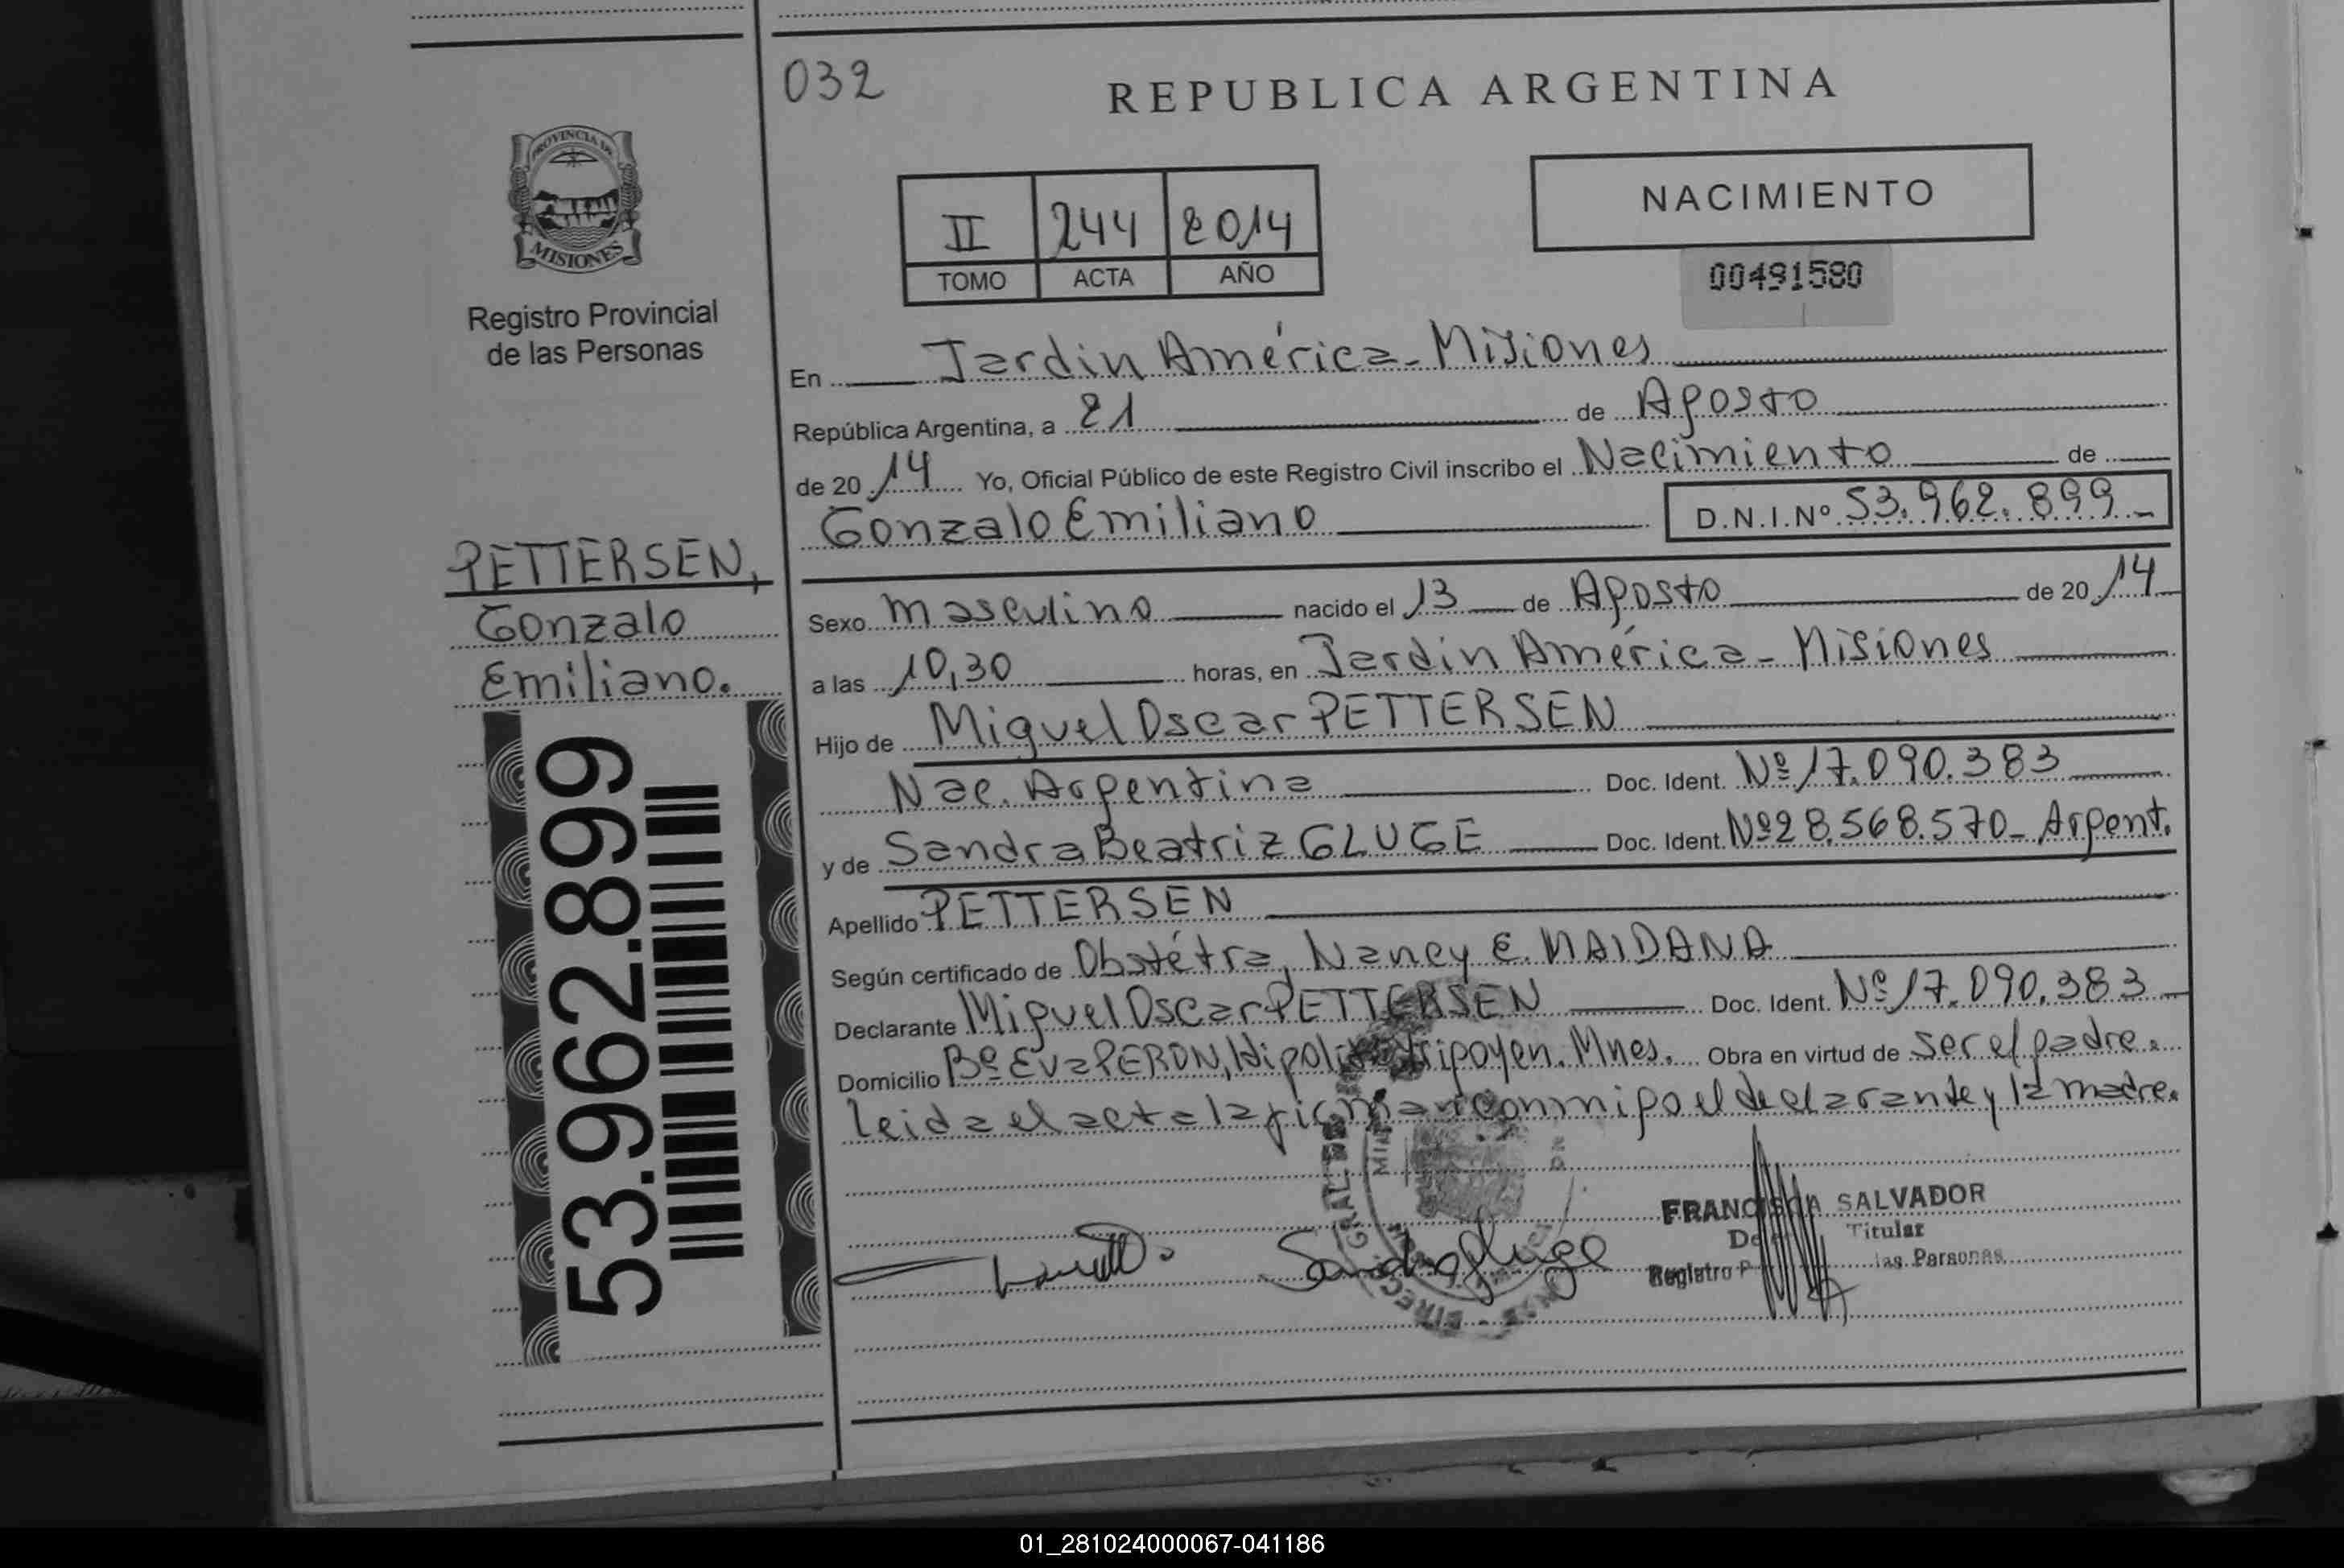 032
REPUBLICA ARGENTINA
PROVINCIA DE
MISIONES
Registro Provincial
de las Personas
II 244 2014
TOMO ACTA AÑO
NACIMIENTO
00491580
En Jardin América - Misiones
República Argentina, a 21 de Agosto
de 2014 Yo, Oficial Público de este Registro Civil inscribo el Nacimiento de
Gonzalo Emiliano D.N.I.Nº 53.962.899-
PETTERSEN,
Gonzalo
Emiliano.
53.962.899
Sexo masculino nacido el 13 de Agosto de 2014
a las 10,30 horas, en Jardin América - Misiones
Hijo de Miguel Oscar PETTERSEN
Nac. Argentina Doc. Ident. Nº 17.090.383
y de Sandra Beatriz GLUGE Doc. Ident. Nº 28.568.570- Argent.
Apellido PETTERSEN
Según certificado de Obstétra, Nancy E. MAIDANA
Declarante Miguel Oscar PETTERSEN Doc. Ident. Nº 17.090.383
Domicilio Bº Eva PERON, Hipolito Yripoyen. Mnes. Obra en virtud de ser el padre.
Leida el acta la firman conmigo el declarante y la madre.
Sandra Gluge
FRANCISCA SALVADOR
Titular
Registro P las Personas
DIRECC. GRAL. DE
01_281024000067-041186